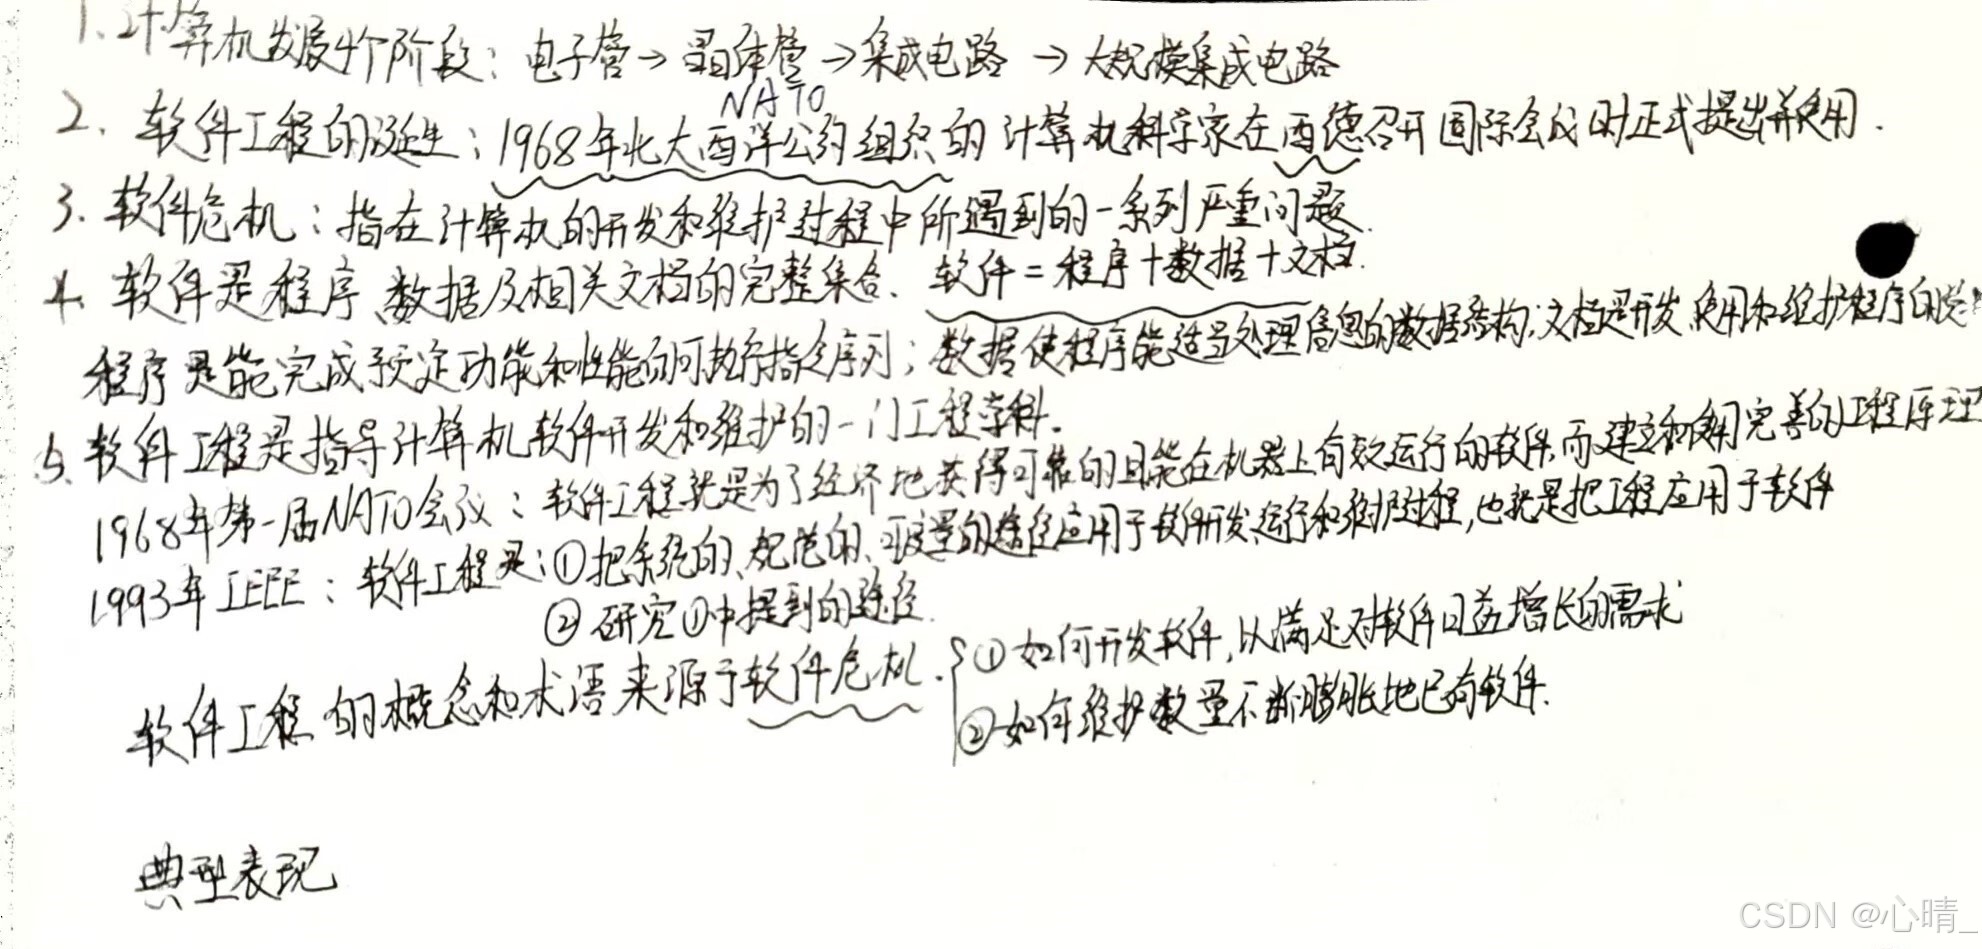 1.计算机发展4个阶段：电子管→晶体管→集成电路→大规模集成电路
NATO
2.软件工程的诞生：1968年北大西洋公约组织的计算机科学家在西德召开国际会议时正式提出并使用.
3.软件危机：指在计算机的开发和维护过程中所遇到的一系列严重问题.
4.软件是程序、数据及相关文档的完整集合. 软件=程序+数据+文档.
程序是能完成预定功能和性能的可执行指令序列；数据使程序能适当处理信息的数据结构；文档是开发、使用和维护程序的
5.软件工程是指导计算机软件开发和维护的一门工程学科.
1968年第一届NATO会议：软件工程就是为了经济地获得可靠的且能在机器上有效运行的软件,而建立和使用完善的工程原理
1993年IEEE：软件工程是：①把系统的、规范的、可度量的途径应用于软件开发、运行和维护过程,也就是把工程应用于软件
②研究①中提到的途径.
软件工程的概念和术语来源于软件危机. ①如何开发软件,以满足对软件日益增长的需求
②如何维护数量不断膨胀地已有软件.
典型表现
CSDN @心晴_